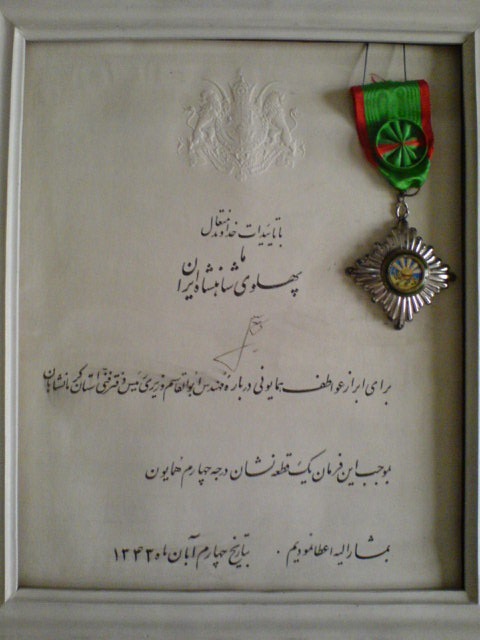 با تائیدات خداوند متعال
ما
پهلوی شاهنشاه ایران
برای ابراز عواطف همایونی درباره مهندس ابوالقاسم وزیری رئیس دفتر فنی استان کرمانشاهان
بموجب این فرمان یک قطعه نشان درجه چهارم همایون
بمشارالیه اعطا نمودیم . بتاریخ چهارم آبان ماه ۱۳۴۳